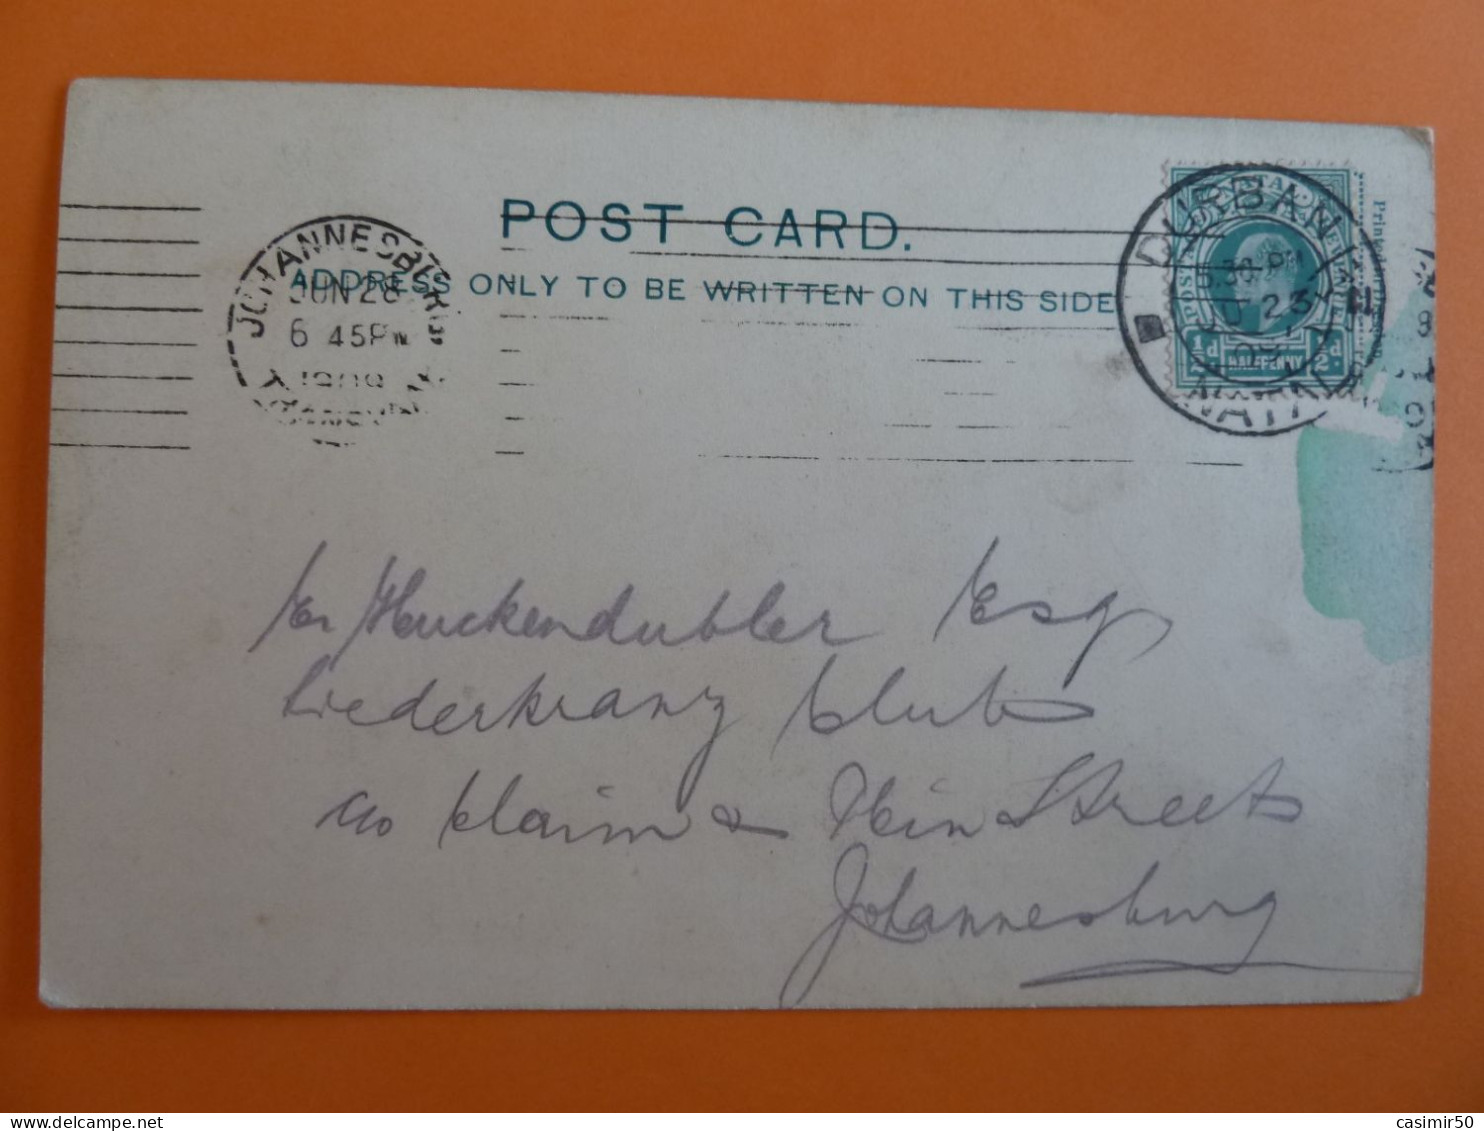 POST CARD.
ADDRESS ONLY TO BE WRITTEN ON THIS SIDE
JOHANNESBURG
JUN 28
6 45PM
1909
DURBAN
5.30 PM
JU 23
09
NATAL
NATAL
POSTAGE REVENUE
½d HALFPENNY ½d
Er Heuckendubler Esq
Liederkranz Club
co Claim & Plein Streets
Johannesburg
delcampe.net
casimir50